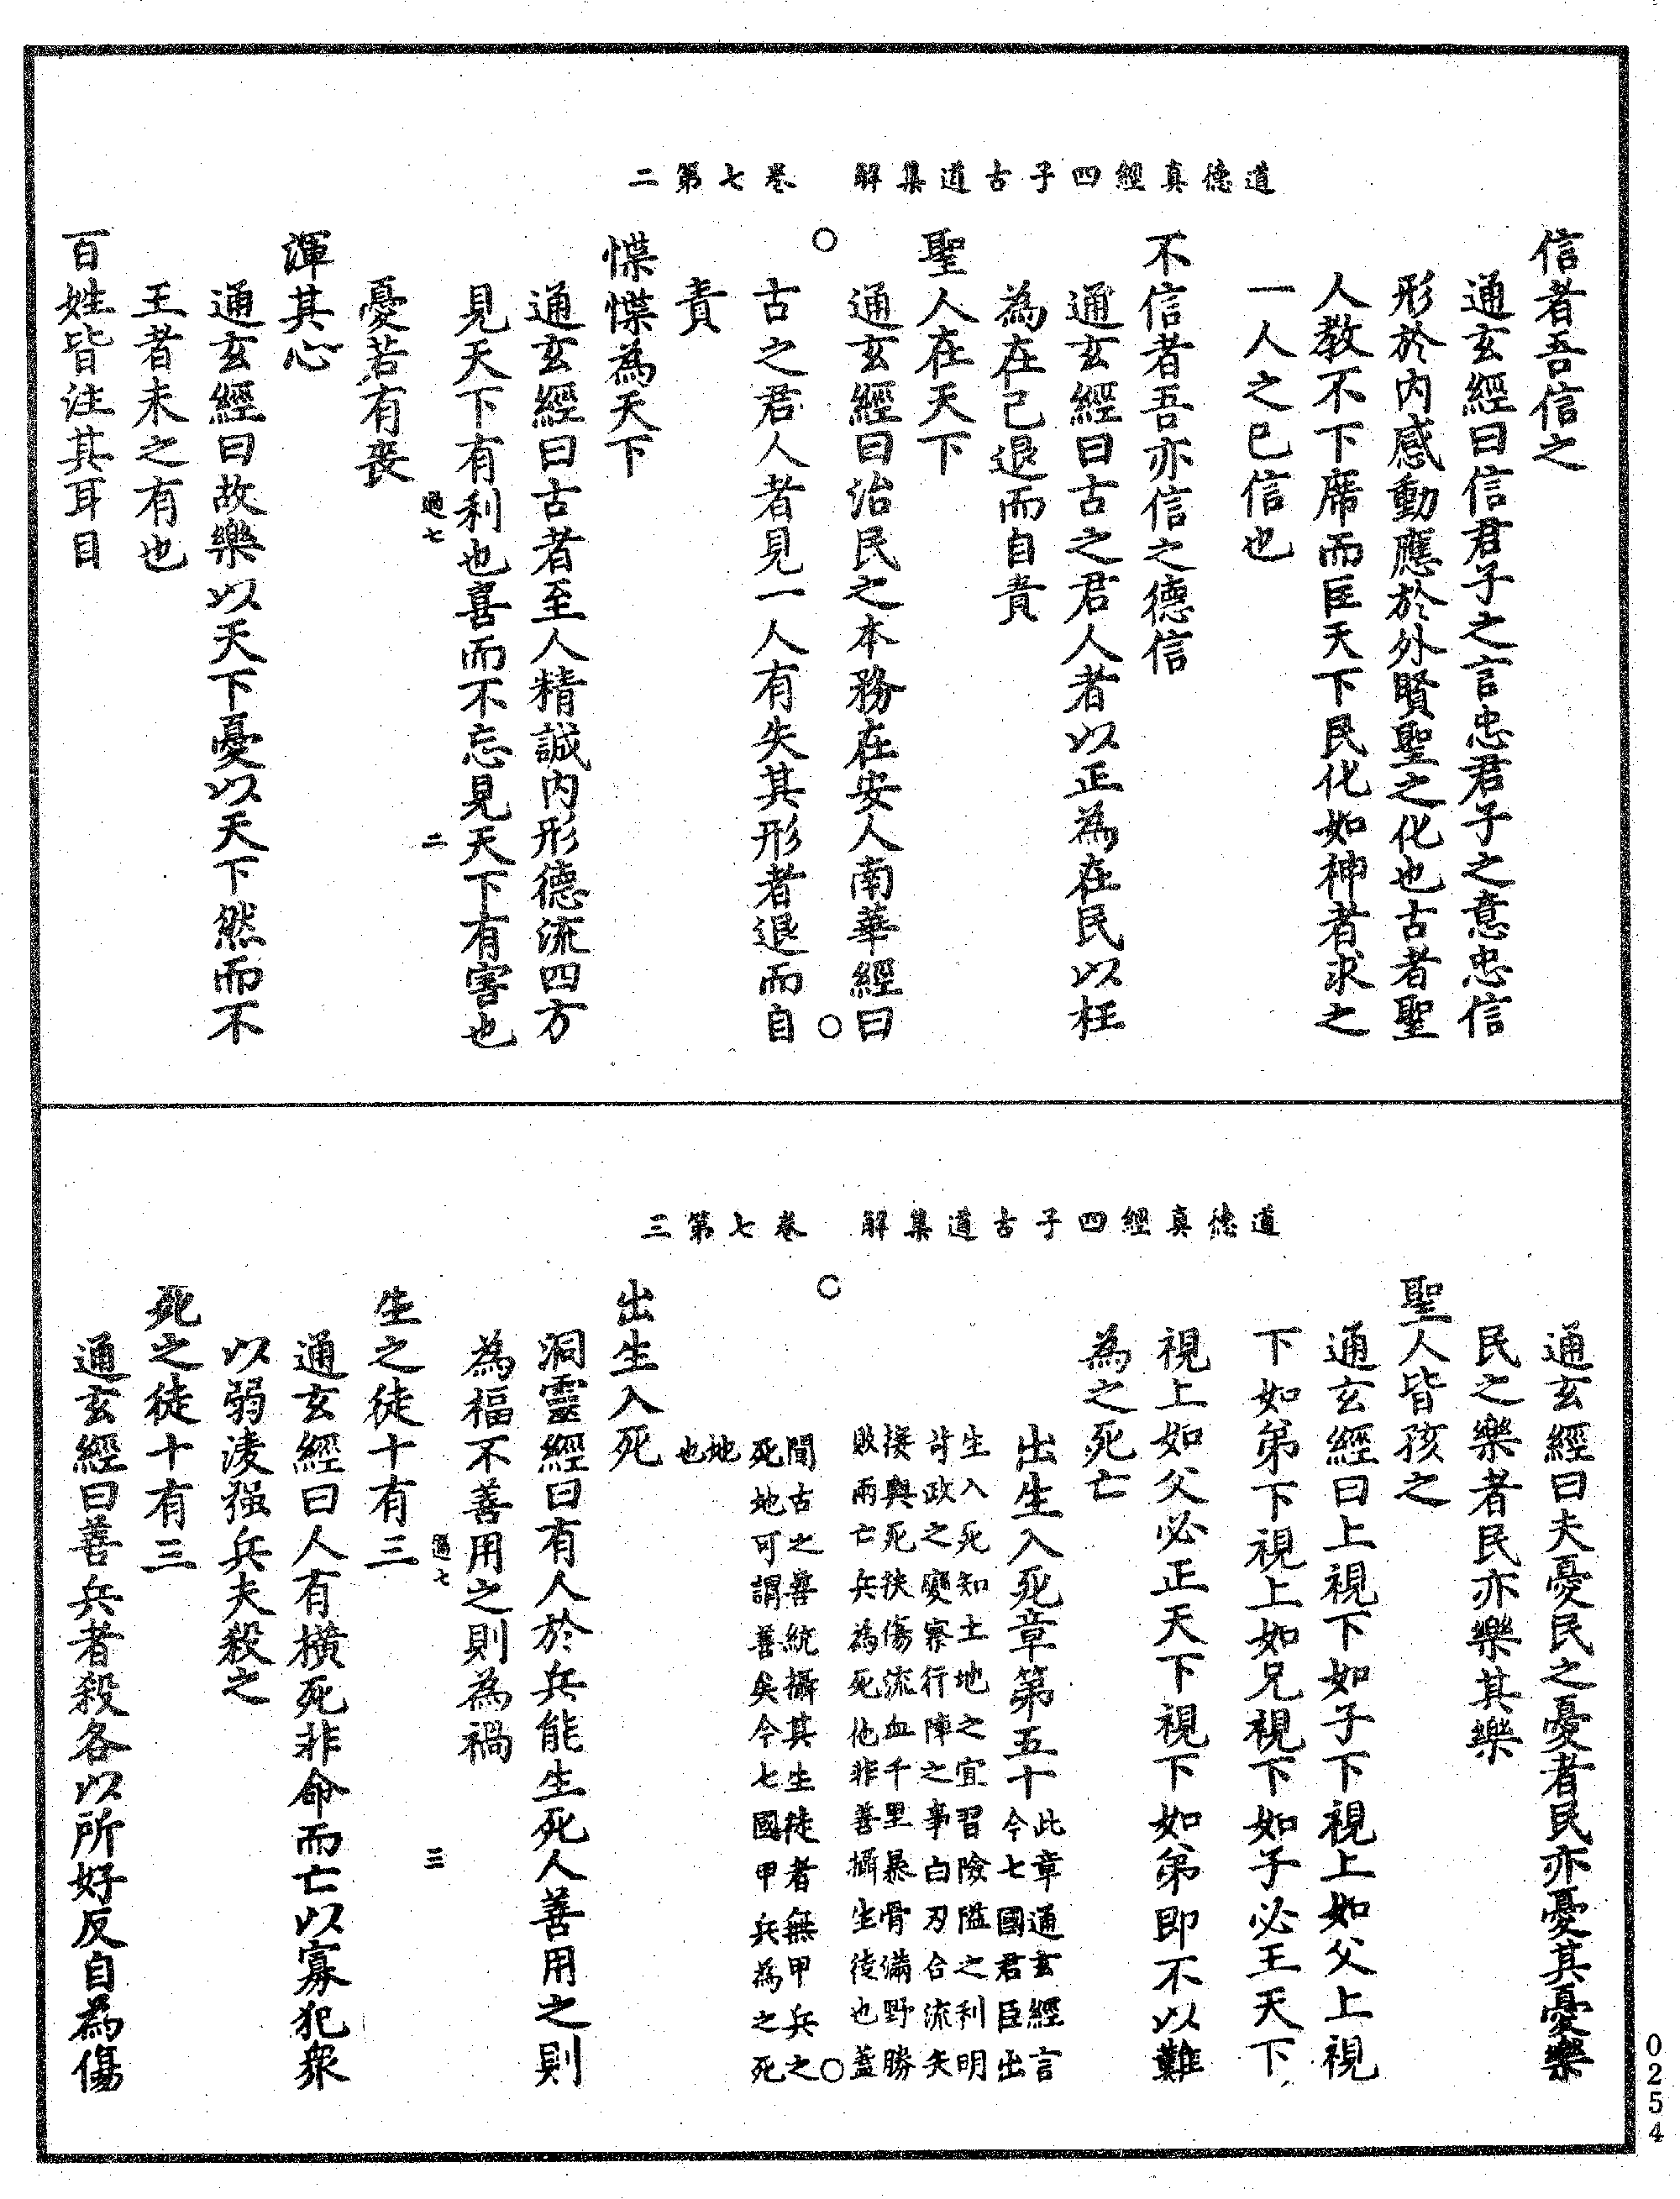 道德真經四子古道集解　卷七第二
信者吾信之
通玄經曰信君子之言忠君子之意忠信
形於內感動應於外賢聖之化也古者聖
人教不下席而臣天下民化如神者求之
一人之已信也
不信者吾亦信之德信
通玄經曰古之君人者以正為在民以枉
為在己退而自責
聖人在天下
通玄經曰治民之本務在安人南華經曰
○　○
古之君人者見一人有失其形者退而自
責
惵惵為天下
通玄經曰古者至人精誠內形德流四方
見天下有利也喜而不忘見天下有害也
過七　二
憂若有喪
渾其心
通玄經曰故樂以天下憂以天下然而不
王者未之有也
百姓皆注其耳目
道德真經四子古道集解　卷七第三
通玄經曰夫憂民之憂者民亦憂其憂樂
民之樂者民亦樂其樂
聖人皆孩之
通玄經曰上視下如子下視上如父上視
下如弟下視上如兄視下如子必王天下
視上如父必正天下視下如弟即不以難
為之死亡
出生入死章第五十
此章通玄經言
今七國君臣出
生入死知土地之宜習險隘之利明
苛政之變察行陣之事白刃合流矢
接輿死扶傷流血千里暴骨滿野勝
敗兩亡兵為死他非善攝生徒也蓋
○　○
間古之善統攝其生徒者無甲兵之
死地可謂善矣今七國甲兵為之死
地
也
出生入死
洞靈經曰有人於兵能生死人善用之則
為福不善用之則為禍
過七　三
生之徒十有三
通玄經曰人有橫死非命而亡以寡犯眾
以弱淩强兵夫殺之
死之徒十有三
通玄經曰善兵者殺各以所好反自為傷
0254